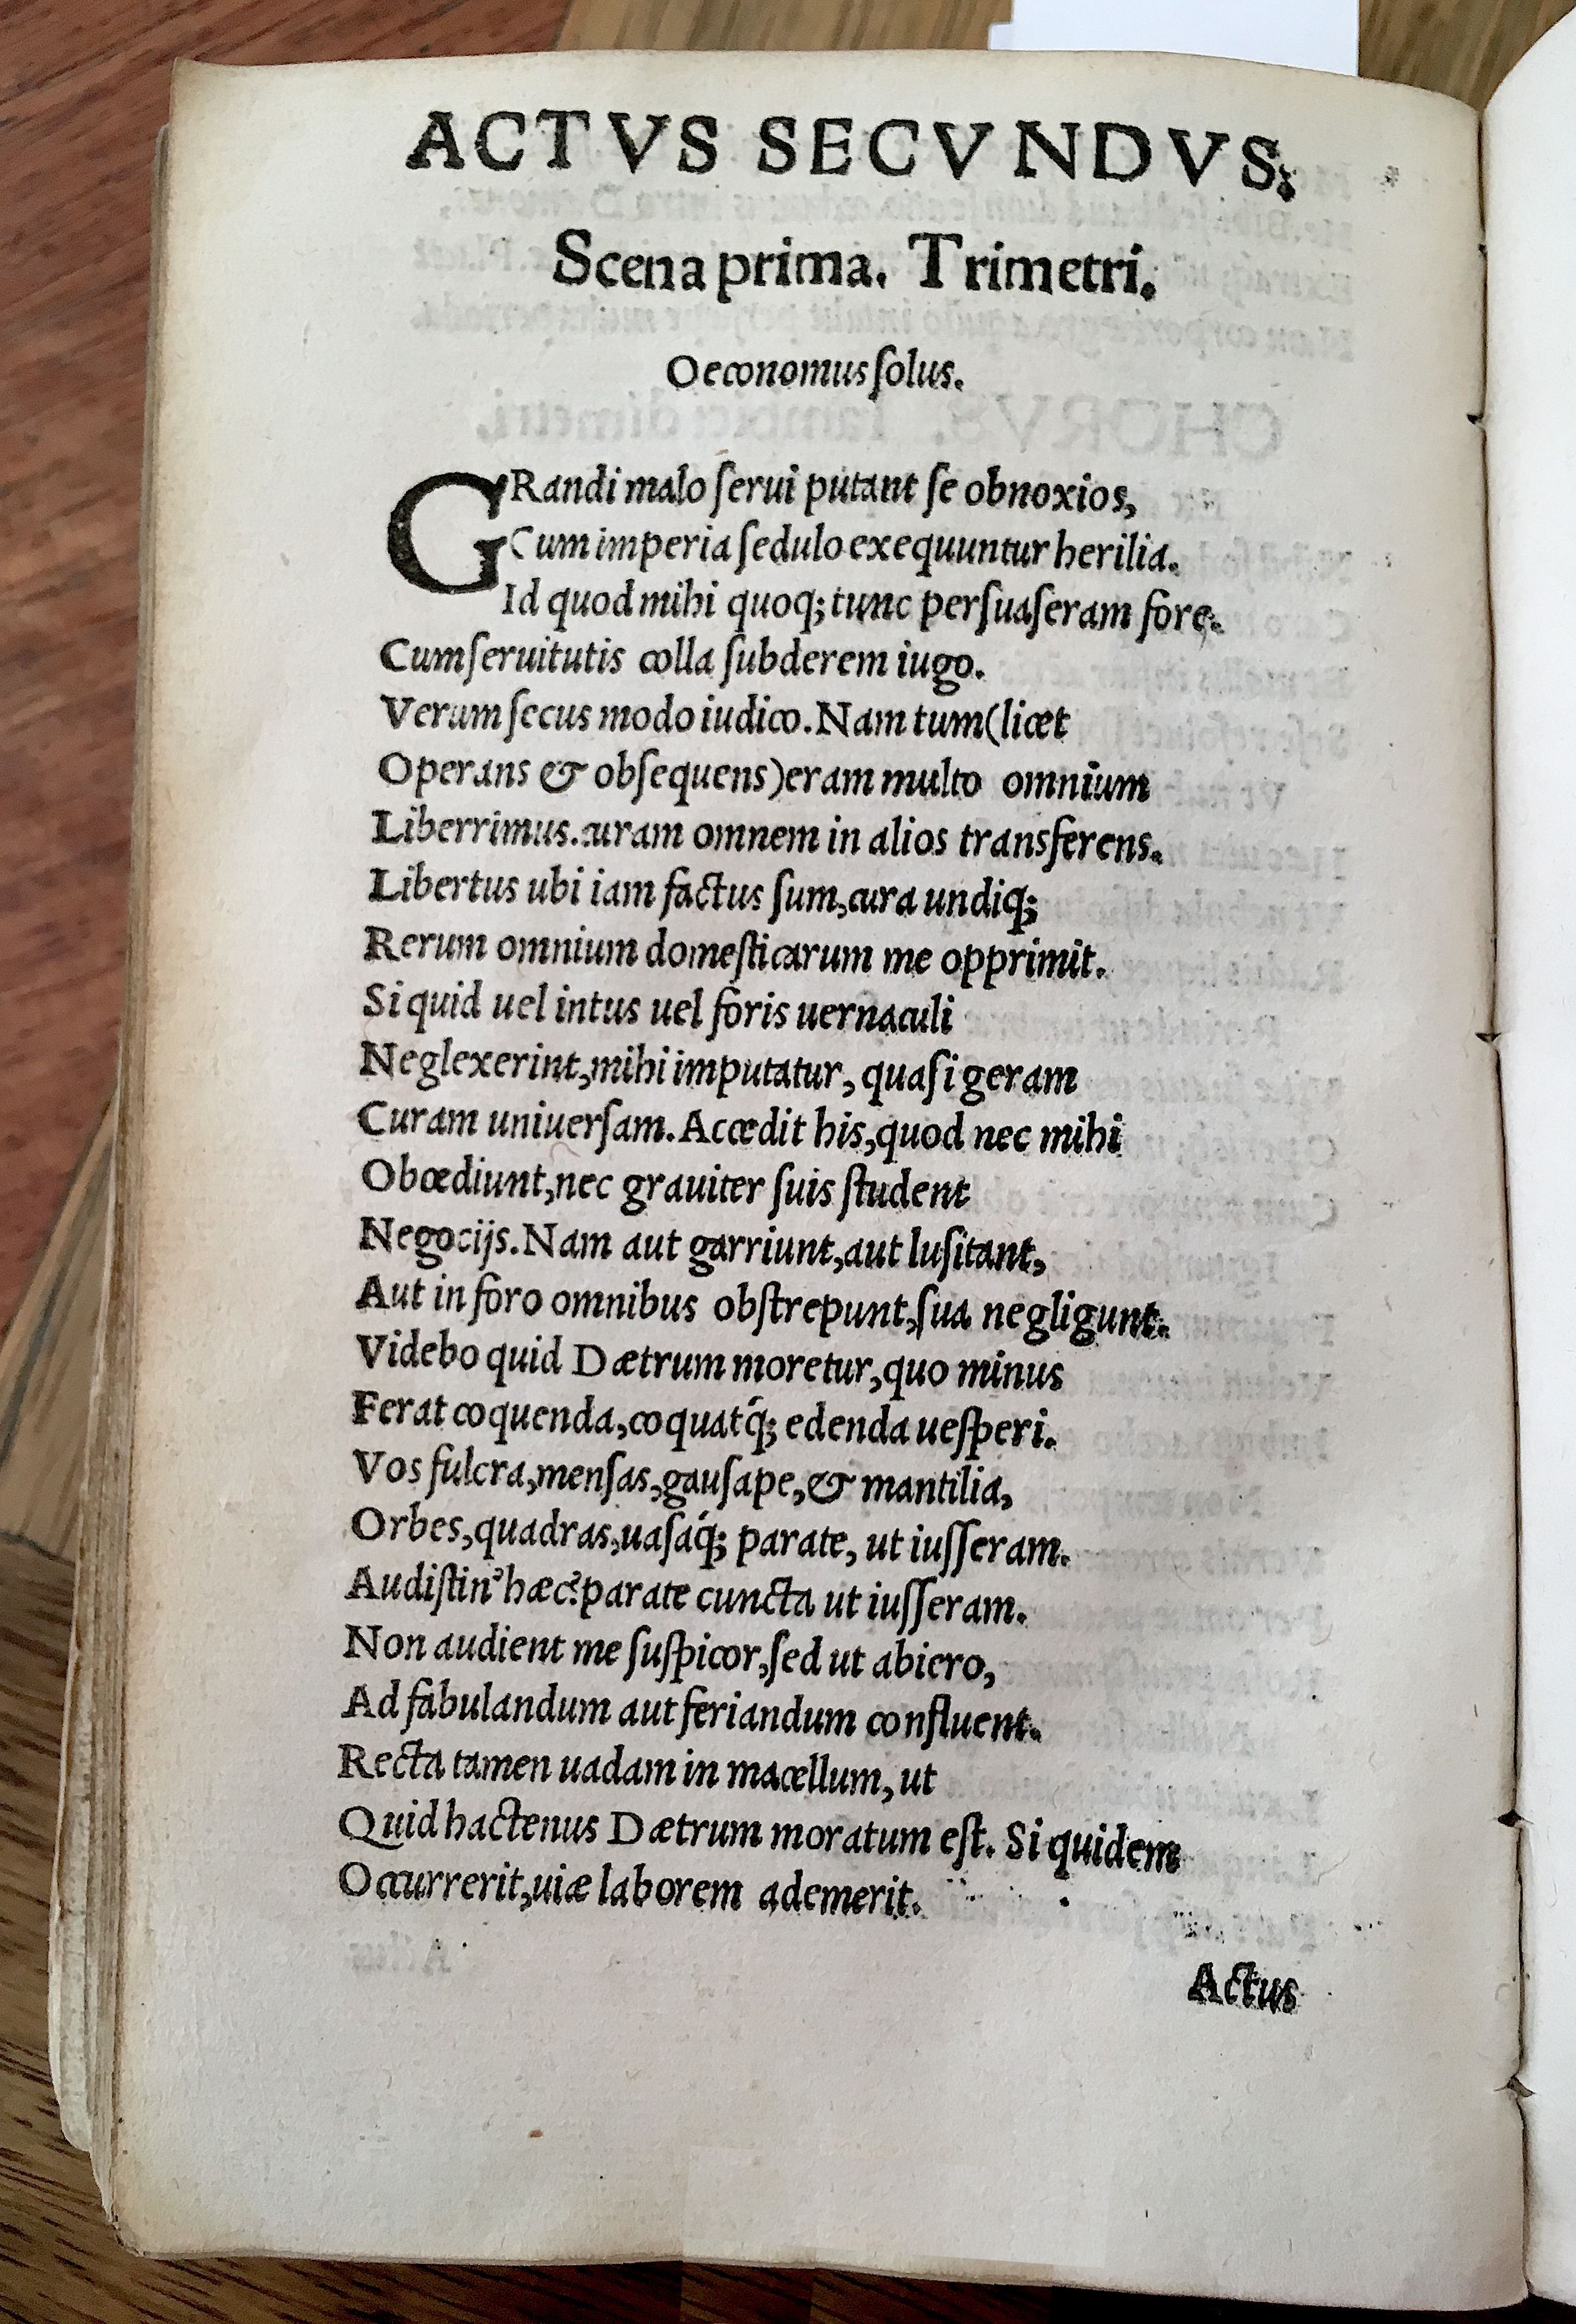 ACTVS SECVNDVS.
Scena prima. Trimetri.
Oeconomus ſolus.
GRandi malo ſerui putant ſe obnoxios,
Cum imperia ſedulo exequuntur herilia.
Id quod mihi quoq; tunc perſuaſeram fore.
Cum ſeruitutis colla ſubderem iugo.
Verum ſecus modo iudico. Nam tum (licet
Operans & obſequens) eram multo omnium
Liberrimus. curam omnem in alios transferens.
Libertus ubi iam factus ſum, cura undiq;
Rerum omnium domeſticarum me opprimit.
Si quid uel intus uel foris uernaculi
Neglexerint, mihi imputatur, quaſi geram
Curam uniuerſam. Accedit his, quod nec mihi
Obœdiunt, nec grauiter ſuis ſtudent
Negocijs. Nam aut garriunt, aut luſitant,
Aut in foro omnibus obſtrepunt, ſua negligunt.
Videbo quid Dætrum moretur, quo minus
Ferat coquenda, coquatq́; edenda ueſperi.
Vos fulcra, menſas, gauſape, & mantilia,
Orbes, quadras, uaſaq́; parate, ut iuſſeram.
Audiſtin' hæc? parate cuncta ut iuſſeram.
Non audient me ſuſpicor, ſed ut abiero,
Ad fabulandum aut feriandum confluent.
Recta tamen uadam in macellum, ut
Quid hactenus Dætrum moratum eſt. Si quidem
Occurrerit, uiæ laborem ademerit.
Actus